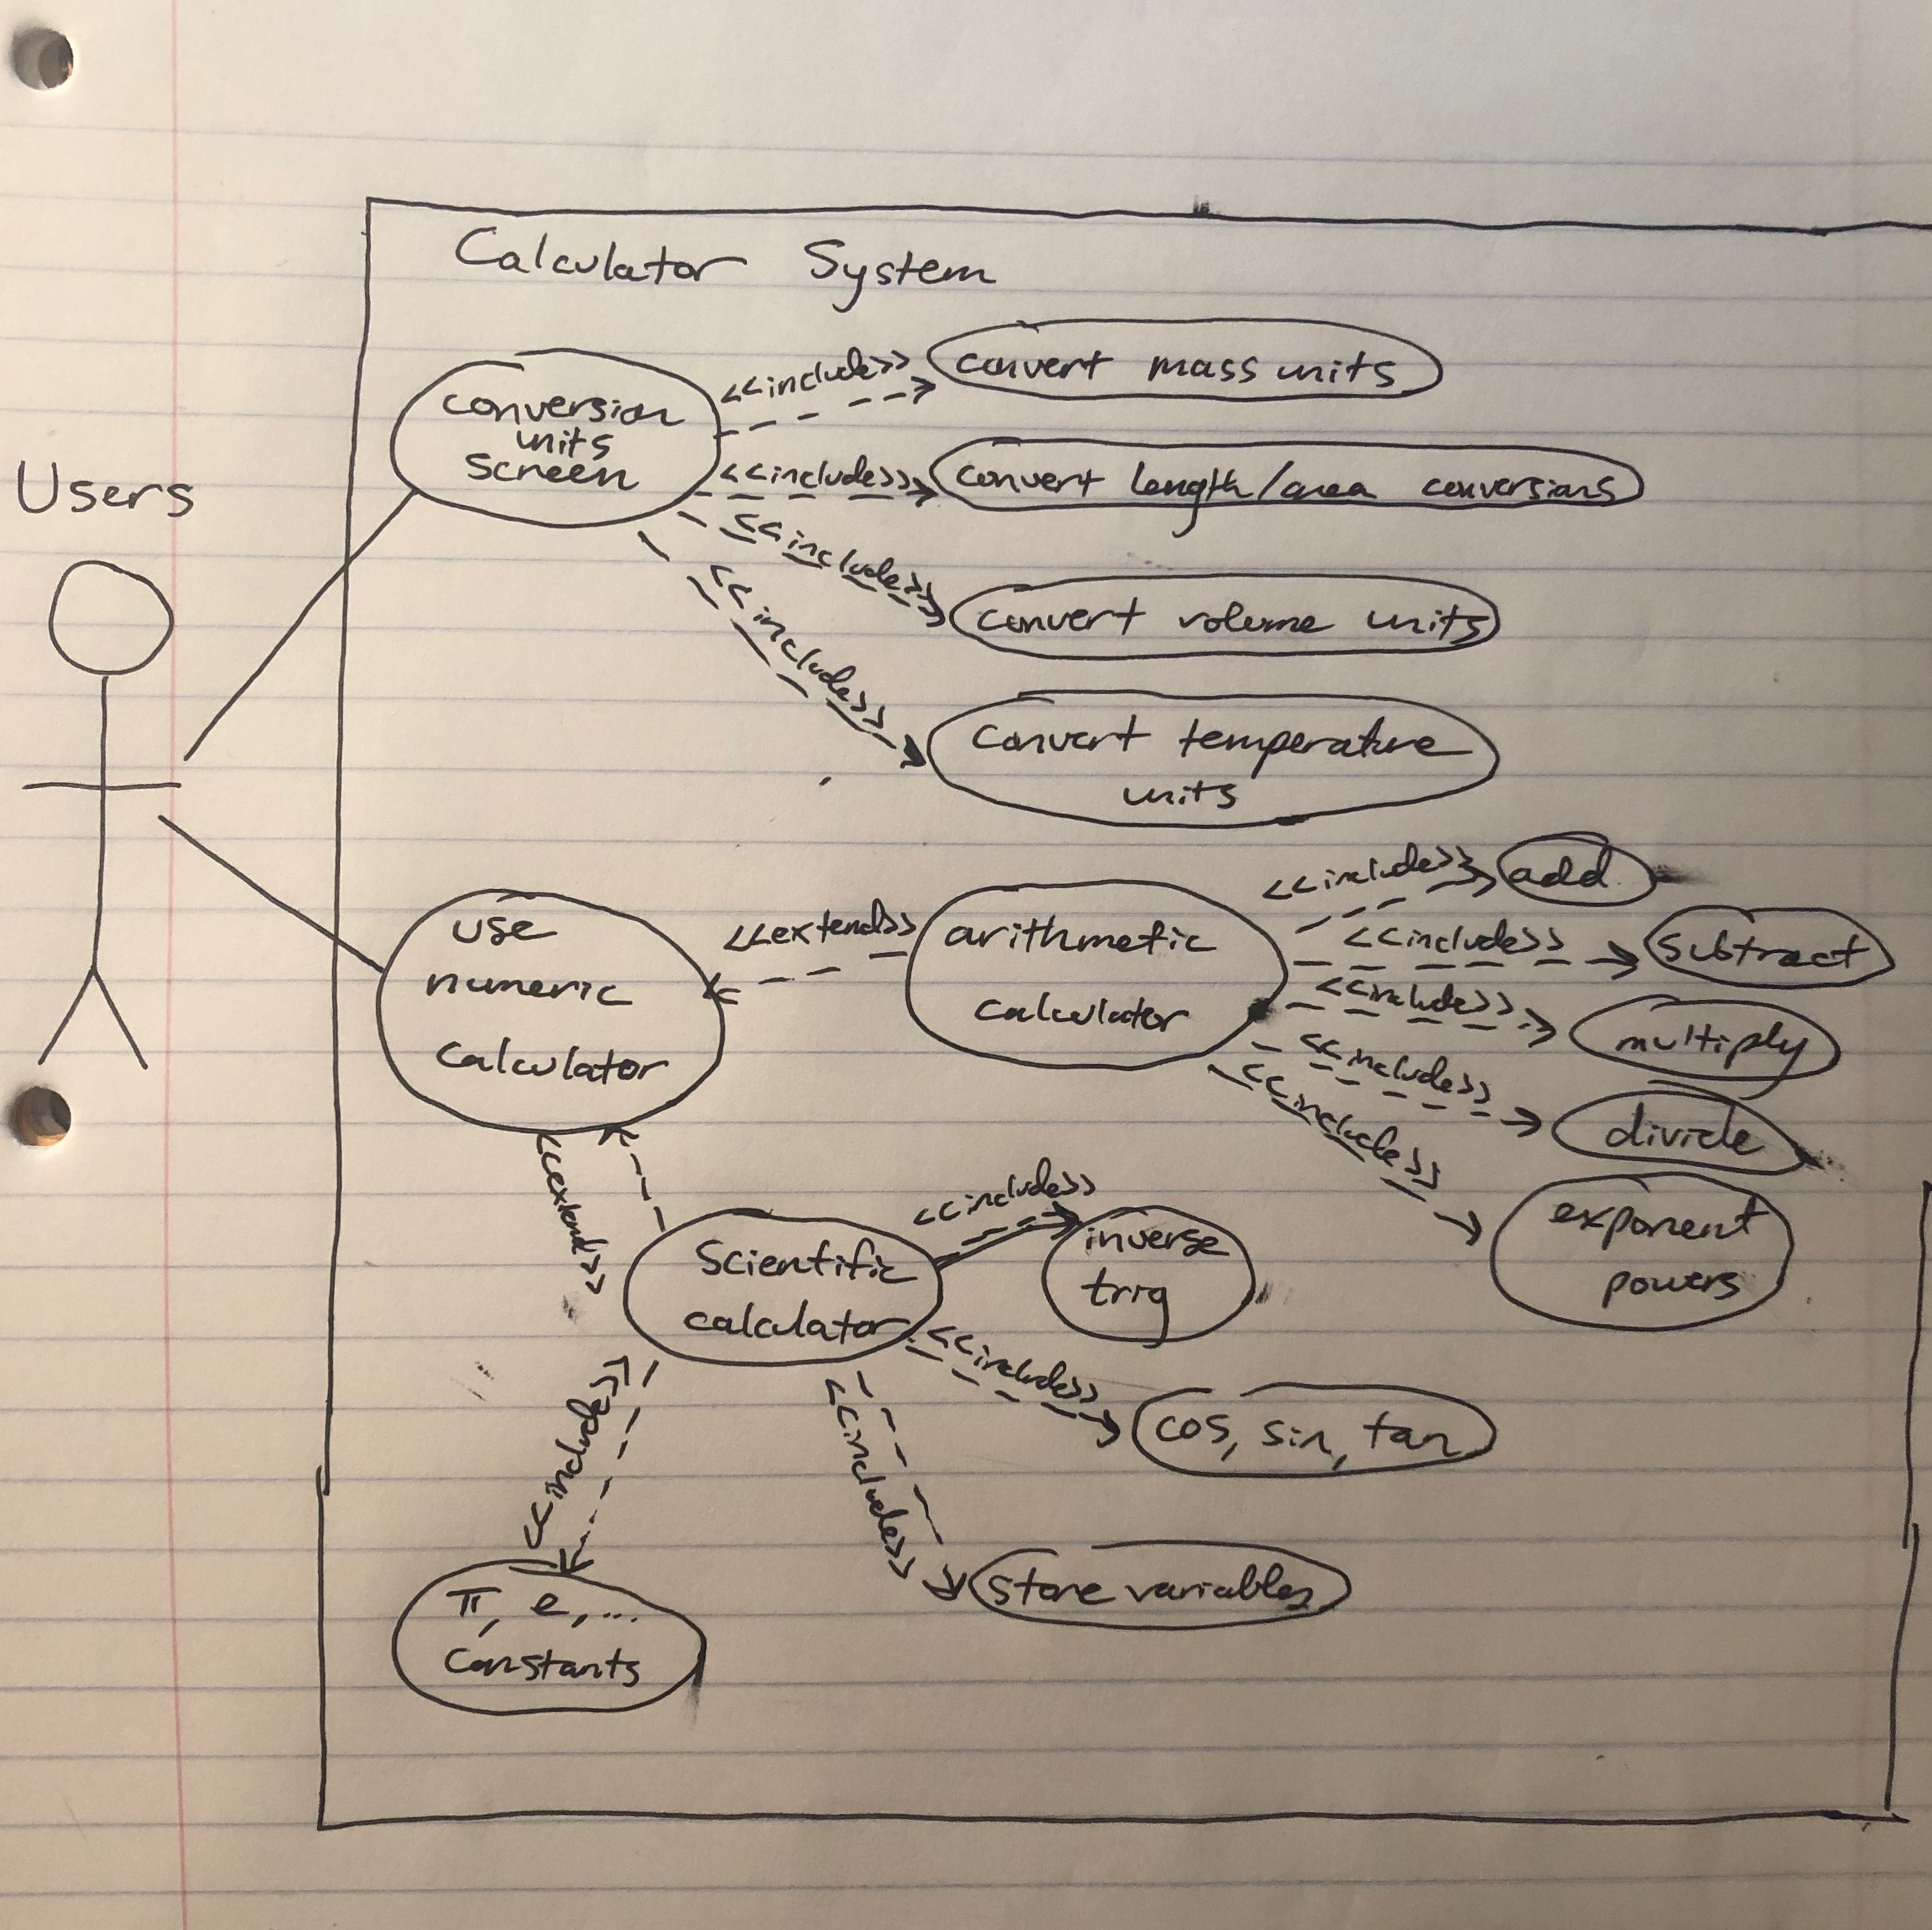 Calculator System
Users
conversion
units
screen
<<include>>
convert mass units
<<include>>
convert length/area conversions
<<include>>
convert volume units
<<include>>
convert temperature
units
use
numeric
calculator
<<extend>>
arithmetic
calculator
<<include>>
add
<<include>>
subtract
<<include>>
multiply
<<include>>
divide
<<include>>
exponent
powers
<<extend>>
Scientific
calculator
<<include>>
inverse
trig
<<include>>
cos, sin, tan
<<include>>
store variables
<<include>>
π, e, ...
constants